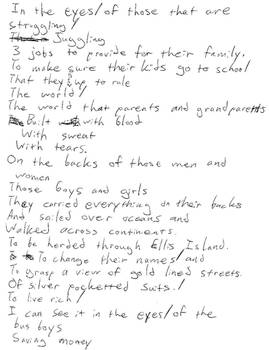 In the eyes/ of those that are
struggling/
Juggling
3 jobs to provide for their family.
To make sure their kids go to school
That they up to rule
The world/
The world that parents and grandparents
Built with blood
With sweat
With tears.
On the backs of those men and
women
Those boys and girls
They carried everything on their backs
And sailed over oceans and
Walked across continents.
To be herded through Ellis Island.
To change their names/ and
To grasp a view of gold lined streets.
Of silver pocketted suits./
To live rich/
I can see it in the eyes/ of the
bus boys
Saving money